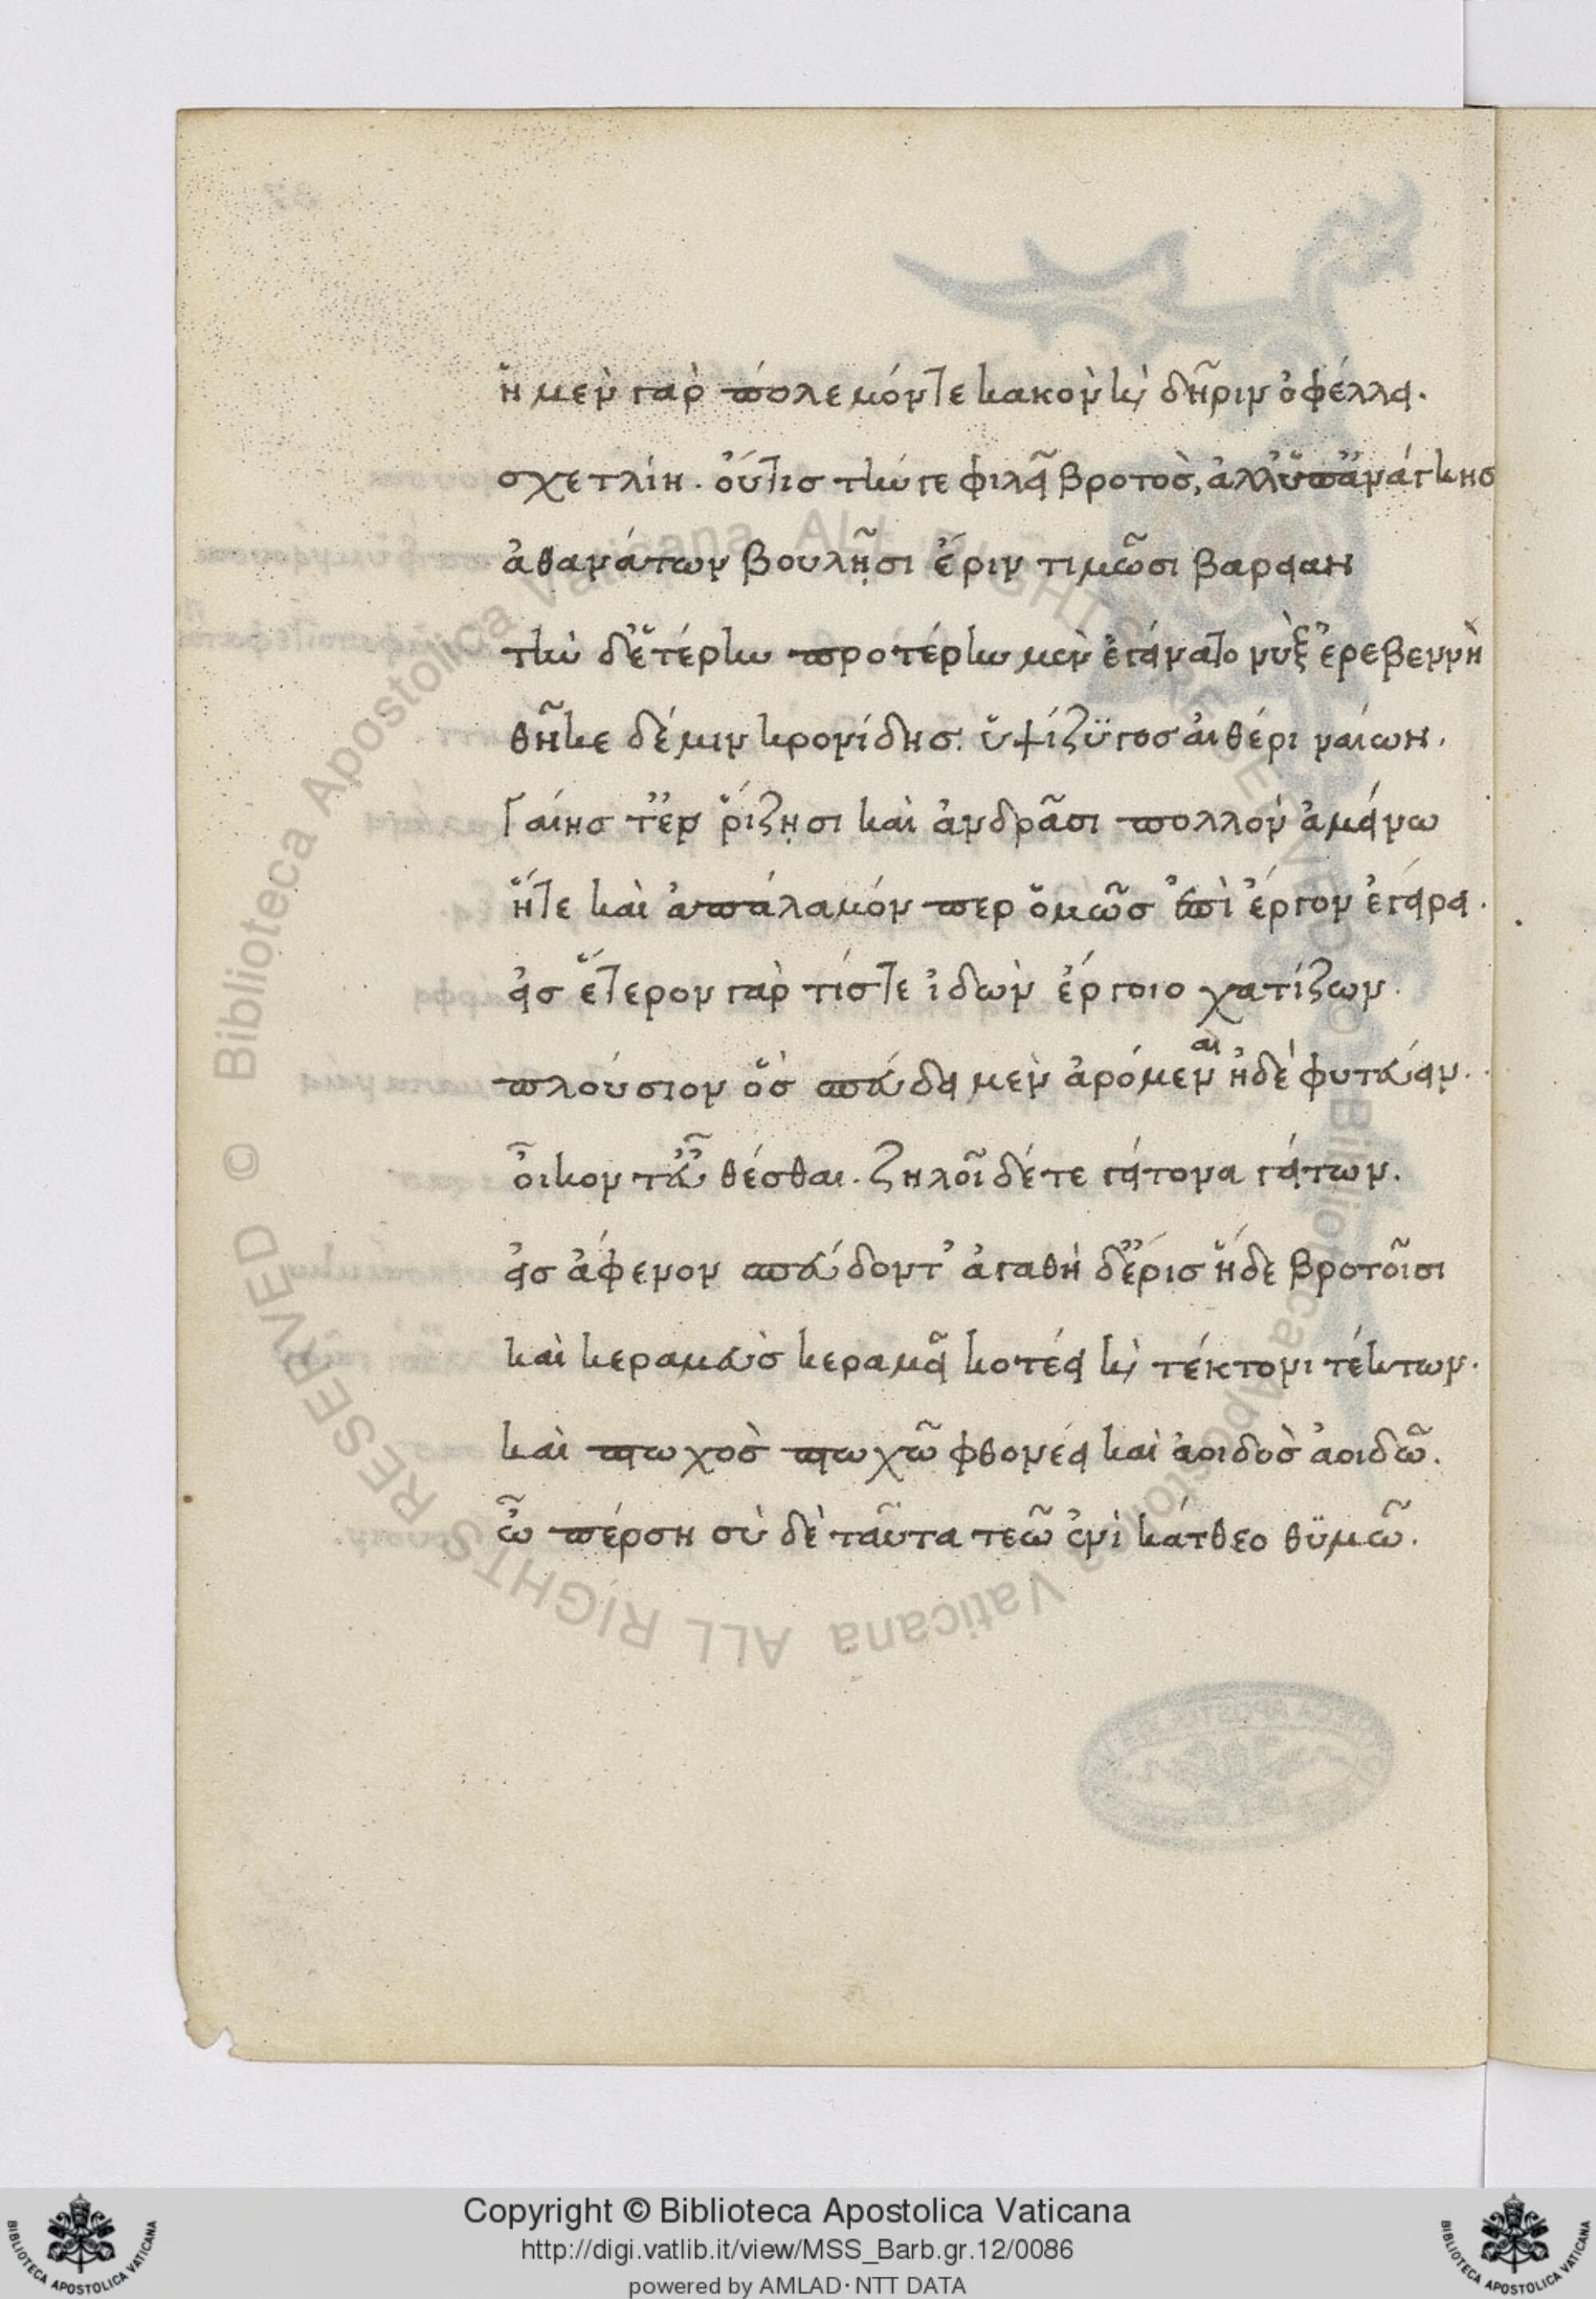 ἡ μὲν γὰρ πόλεμόν τε κακὸν καὶ δῆριν ὀφέλλει.
σχετλίη. οὔτις τήν γε φιλεῖ βροτὸς, ἀλλ' ὑπ' ἀνάγκης
ἀθανάτων βουλῇσι ἔριν τιμῶσι βαρείαν
τὴν δ' ἑτέρην προτέρην μὲν ἐγείνατο νὺξ ἐρεβεννὴ
θῆκε δέ μιν κρονίδης. ὑψίζϋγος αἰθέρι ναίων.
Γαίης τ' ἐν ῥίζῃσι καὶ ἀνδρᾶσι πολλὸν ἀμείνω
ἥτε καὶ ἀπάλαμόν περ ὁμῶς ἐπὶ ἔργον ἐγείρει.
εἰς ἕτερον γὰρ τίς τε ἰδὼν ἔργοιο χατίζων.
πλούσιον ὃς σπεύδει μὲν ἀρόμεναι ἠδὲ φυτεύειν.
οἶκον τ' εὖ θέσθαι. ζηλοῖ δέ τε γείτονα γείτων.
εἰς ἄφενον σπεύδοντ' ἀγαθὴ δ' ἔρις ἥδε βροτοῖσι
καὶ κεραμεὺς κεραμεῖ κοτέει καὶ τέκτονι τέκτων.
καὶ πτωχὸς πτωχῶ φθονέει καὶ ἀοιδὸς ἀοιδῶ.
ὦ πέρση σὺ δὲ ταῦτα τεῶ ἐνὶ κάτθεο θϋμῶ.
Copyright © Biblioteca Apostolica Vaticana
http://digi.vatlib.it/view/MSS_Barb.gr.12/0086
powered by AMLAD·NTT DATA